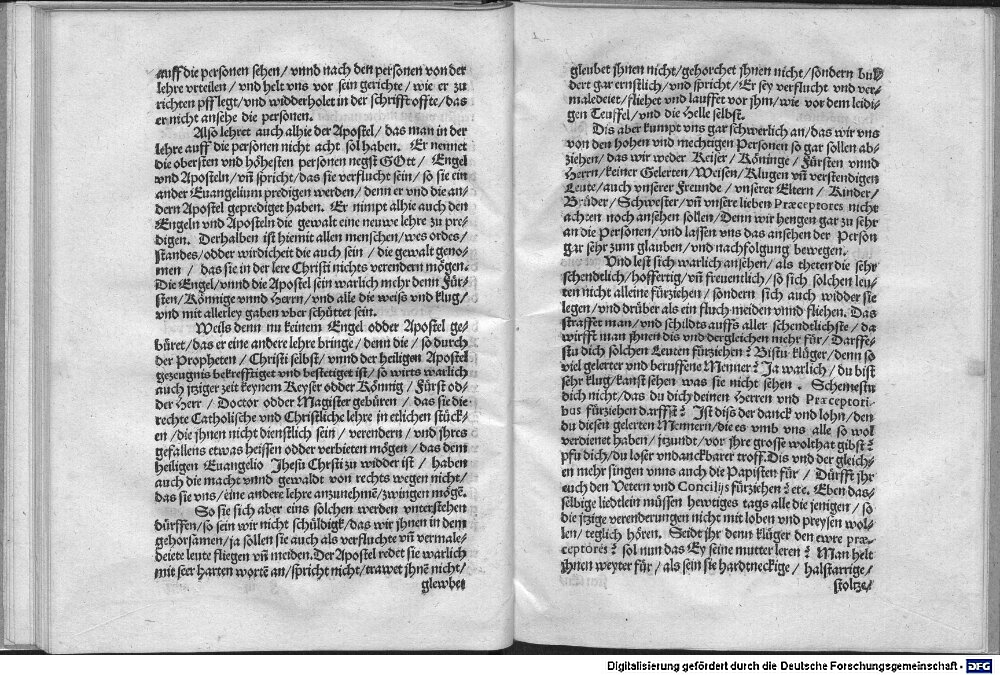 auff die personen sehen/ vnnd nach den personen von der
lehre vrteilen/ vnd helt vns vor sein gerichte/ wie er zu
richten pfflegt/ vnd widderholet in der schrifft offte/ das
er nicht ansehe die personen.
Also lehret auch alhie der Apostel/ das man in der
lehre auff die personen nicht acht sol haben. Er nennet
die obersten vnd höhesten personen negst GOtt/ Engel
vnd Aposteln/ vn̄ spricht/ das sie verflucht sein/ so sie ein
ander Euangelium predigen werden/ denn er vnd die an-
dern Apostel geprediget haben. Er nimpt alhie auch den
Engeln vnd Aposteln die gewalt eine neuwe lehre zu pre-
digen. Derhalben ist hiemit allen menschen/ wes ordes/
standes/ odder wirdicheit die auch sein/ die gewalt geno-
men/ das sie in der lere Christi nichts verendern mögen.
Die Engel/ vnnd die Apostel sein warlich mehr denn Für-
sten/ Könnige vnnd Herrn/ vnd alle die weise vnd klug/
vnd mit allerley gaben vber schüttet sein.
Weils denn nu keinem Engel odder Apostel ge-
büret/ das er eine andere lehre bringe/ denn die/ so durch
der Propheten/ Christi selbst/ vnnd der heiligen Apostel
gezeugnis bekrefftiget vnd bestetiget ist/ so wirts warlich
auch itziger zeit keynem Keyser odder Könnig/ Fürst od-
der Herr/ Doctor odder Magister gebüren/ das sie die
rechte Catholische vnd Christliche lehre in etlichen stück-
en/ die jhnen nicht dienstlich sein/ verendern/ vnd jhres
gefallens etwas heissen odder verbieten mögen/ das dem
heiligen Euangelio Jhesu Chrsti zu widder ist/ haben
auch die macht vnnd gewaldt von rechts wegen nicht/
das sie vns/ eine andere lehre anzunehmē/ zwingen mögē.
So sie sich aber eins solchen werden vnterstehen
dürffen/ so sein wir nicht schüldigk/ das wir jhnen in dem
gehorsamen/ ja sollen sie auch als verfluchte vn̄ vermale-
deiete leute fliegen vn̄ meiden. Der Apostel redet sie warlich
mit seer harten wortē an/ spricht nicht/ trawet jhnē nicht/
glewbet
gleubet jhnen nicht/ gehorchet jhnen nicht/ sondern bur-
dert gar ernstlich/ vnd spricht/ Er sey verflucht vnd ver-
maledeiet/ fliehet vnd lauffet vor jhm/ wie vor dem leidi-
gen Teuffel/ vnd die Helle selbst.
Dis aber kumpt vns gar schwerlich an/ das wir vns
von den hohen vnd mechtigen Personen so gar sollen ab-
ziehen/ das wir weder Keiser/ Köninge/ Fürsten vnnd
Herrn/ keiner Gelerten/ Weisen/ Klugen vn̄ verstendigen
Leute/ auch vnserer Freunde/ vnserer Eltern/ Kinder/
Brüder/ Schwester/ vn̄ vnsere lieben Præceptores nicht
achten noch ansehen sollen/ Denn wir hengen gar zu sehr
an die Personen/ vnd lassen vns das ansehen der Person
gar sehr zum glauben/ vnd nachfolgung bewegen.
Vnd lest sich warlich ansehen/ als theten die sehr
schendtlich/ hoffertig/ vn̄ freuentlich/ so sich solchen leu-
ten nicht alleine fürziehen/ sondern sich auch widder sie
legen/ vnd drüber als ein fluch meiden vnnd fliehen. Das
straffet man/ vnd schildts auffs aller schendtlichste/ da
wirfft man jhnen dis vnd dergleichen mehr für/ Darffe-
stu dich solchen Leuten fürziehen? Bistu klüger/ denn so
viel gelerter vnd beruffene Menner? Ja warlich/ du bist
sehr klug/ kanst sehen was sie nicht sehen. Schemestu
dich nicht/ das du dich deinen Herren vnd Præceptori-
bus fürziehen darffst? Ist diss der danck vnd lohn/ den
du diesen gelerten Mennern/ die es vmb vns alle so wol
verdienet haben/ jtzundt/ vor jhre grosse wolthat gibst?
pfu dich/ du loser vndanckbarer troff. Dis vnd der gleich-
en mehr singen vnns auch die Papisten für/ Dürfft jhr
euch den Vetern vnd Concilijs fürziehen? etc. Eben das-
selbige liedtlein müssen hewtiges tags alle die jenigen/ so
die jtzige verenderungen nicht mit loben vnd preysen wol-
len/ teglich hören. Seidt jhr denn klüger den ewre præ-
ceptores? sol nun das Ey seine mutter leren? Man helt
jhnen weyter für/ als sein sie hardtneckige/ halstarrige/
stoltze/
Digitalisierung gefördert durch die Deutsche Forschungsgemeinschaft - DFG